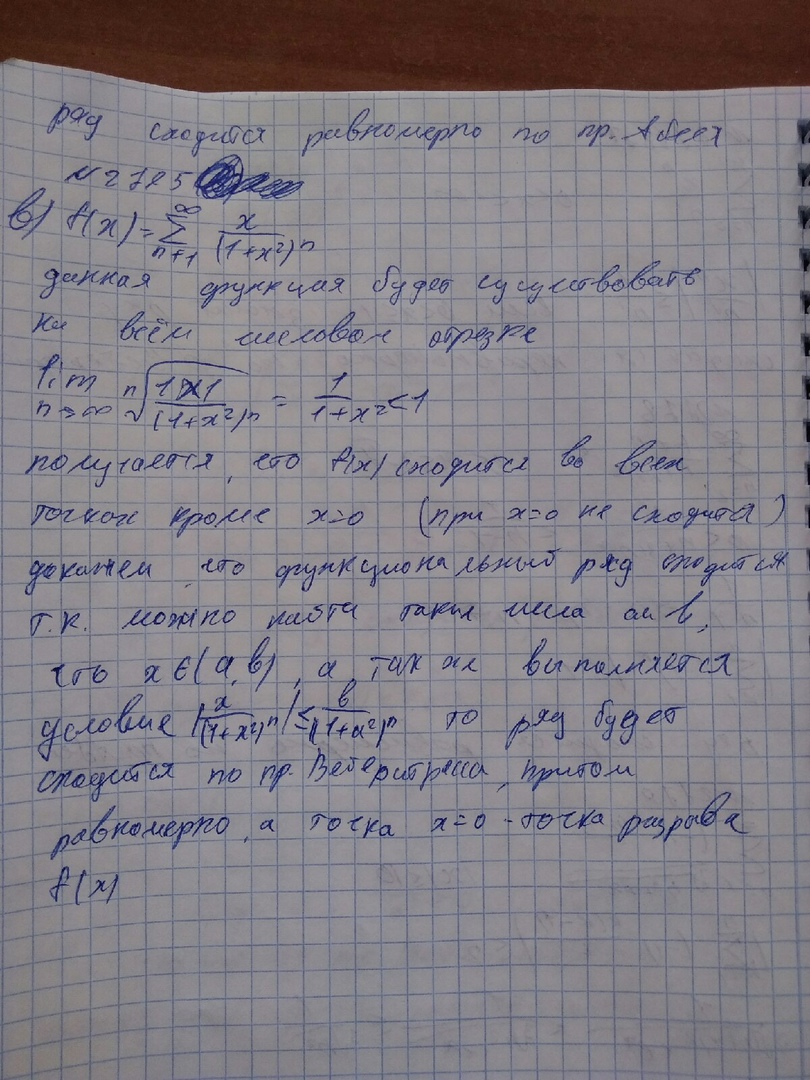 ряд сходится равномерно по пр. Абеля
№2795
в) f(x) = ∑_{n+1}^{∞} x/(1+x²)ⁿ
данная функция будет существовать
на всём числовом отрезке
lim_{n→∞} ⁿ√(|x|/(1+x²)ⁿ) = 1/(1+x²) < 1
получается, что f(x) сходится во всех
точках кроме x=0 (при x=0 не сходится)
докажем, что функциональный ряд сходится
т.к. можно найти такие числа a и b,
что x∈(a,b), а так же выполняется
условие |x/(1+x²)ⁿ| ≤ b/(1+a²)ⁿ то ряд будет
сходится по пр. Веерштрасса, притом
равномерно, а точка x=0 - точка разрыва
f(x)